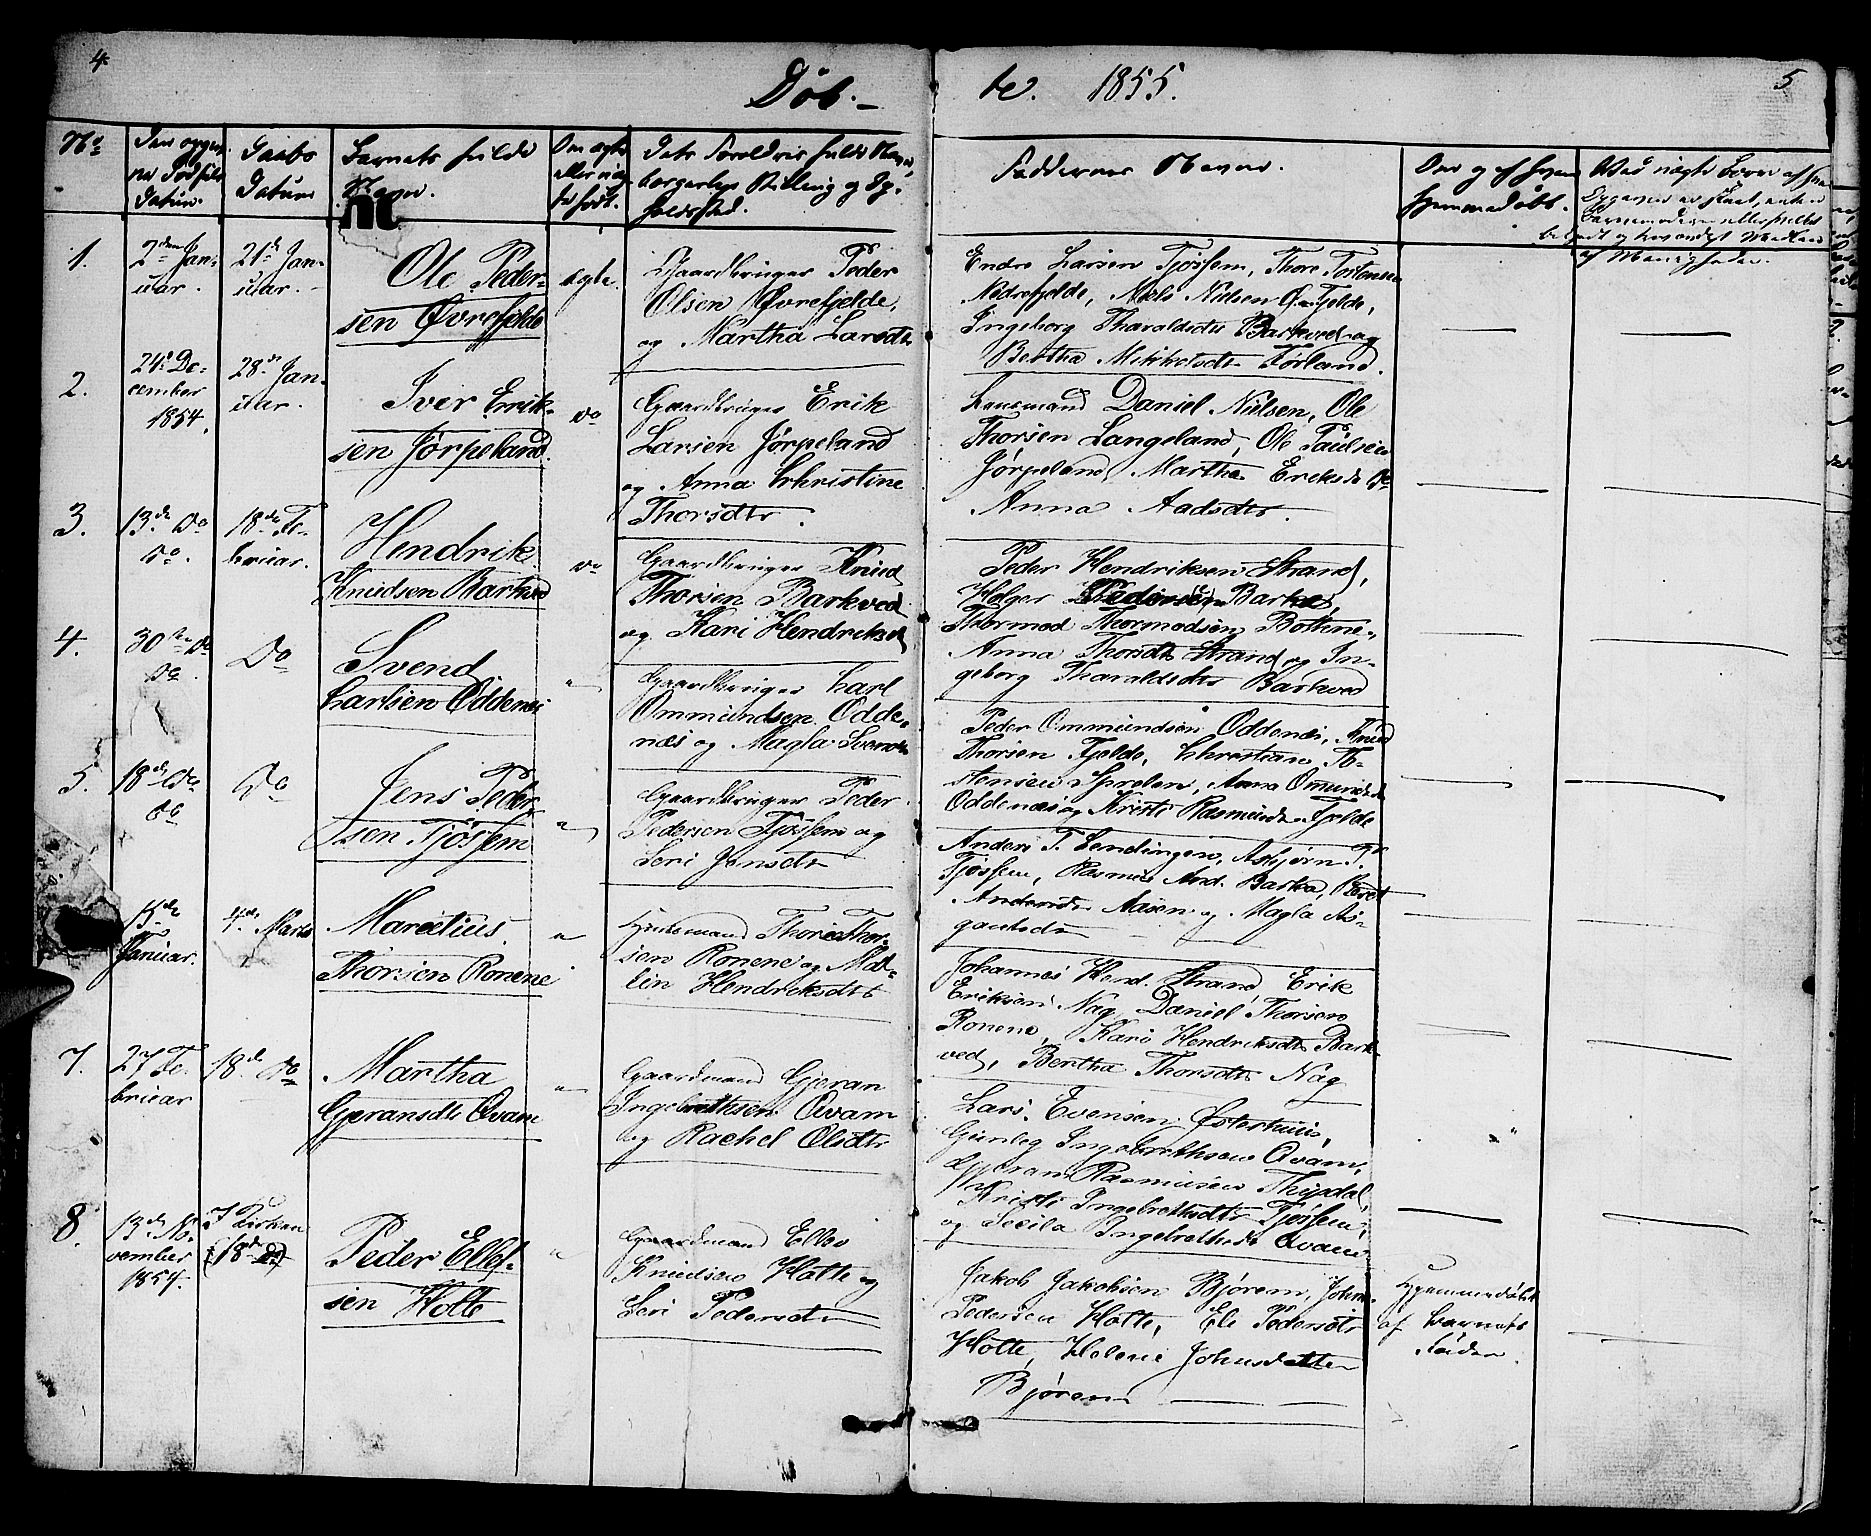 4
Døb-
te. 1855.
5
No
Den opgiv-
ne Fødsels
Datum.
Daabs
Datum
Barnets fulde
Navn.
Om ægte
eller uæg-
te født.
Dets Forældres fulde Navne,
borgerlige Stilling og Op-
holdssted.
Faddernes Navne.
Om og af hvem
hjemmedøbt.
1.
2den Jan-
uar.
21de Jan-
uar.
Ole Peder-
sen Øvrefjelde
ægte.
Gaardbruger Peder
Olsen Øvrefjelde,
og Martha Larsdtr
Endre Larsen Tjøssem, Thore Tostensen
Nedrefjelde, Niels Nielsen Ø. Fjelde,
Ingeborg Tharaldsdtr Barkved og
Bertha Mikkelsdtr Førland.
2.
24de De-
cember
1854.
28de Jan-
uar.
Iver Erik-
sen Jørpeland.
do
Gaardbruger Erik
Larsen Jørpeland
og Anna Christine
Thorsdtr.
Lensmand Daniel Nielsen, Ole
Thorsen Langeland, Ole Paulsen
Jørpeland, Martha Eriksdr do
Anna Aadsdtr.
3.
13de Do
Do.
18de Fe-
bruar.
Hendrik
Knudsen Barkved
do
Gaardbruger Knud
Thorsen Barkved
og Kari Hendriksd
Peder Hendriksen Strand,
Holger Pedersen Barkved,
Thormod Thormodsen Bottne,
Anna Thorsdtr Strand og In-
geborg Tharaldsdtr Barkved
4.
30te Do
Do.
Do
Svend
Carlsen Oddenes
"
Gaardbruger Carl
Ommundsen Odde-
næs og Magla Svends
Peder Ommundsen Oddenæs, Knud
Thorsen Fjelde, Christian To-
stensen, Anna Omundsd
Oddenæs og Kirsti Rasmusdtr Fjelde
5.
18de Do
Do
Do
Jens Peder-
sen Tjøssem
"
Gaardbruger Peder
Pedersen Tjøssem og
Seri Jensdtr
Anders T. Lendingen, Asbjørn P.
Tjøssem, Rasmus And. Barka, Beret
Andersdr Aasen og Magla As-
gautsdr
15de
Januar.
4de Marts
Marcelius
Thorsen Ronene
"
Huusmand Thore Thor-
sen Ronene og Ma-
lin Hendriksdtr
Johannes Hend. Strand, Erik
Eriksen Nag, Daniel Thorsen
Ronene, Kari Hendriksdtr Bark-
ved, Bertha Thorsdtr Nag
7.
27 Fe-
bruar
18de Do
Martha
Gjeransdtr Qvam
"
Gaardmand Gjeran
Ingebrethsen Qvam
og Rachel Olsdtr
Lars Evensen Østerhuus,
Gunleg Ingebrethsen Qvam,
Gjeran Rasmusen Thysdal,
Kristi Ingebrethsdtr Tjøssem,
og Secila Ingebrethsdr Qvam
"
8.
13de No-
vember
1854.
I Kirken
(18de do)
Peder Ellef-
sen Holte
"
Gaardmand Ellev
Knudsen Holte og
Seri Pedersdtr
Jakob Jakobsen Bjørem, John
Pedersen Holte, Eli Pedersdtr
Holte, Helene Johnsdatter
Bjørem
Hjemmedøbt
af Barnets
Fader.